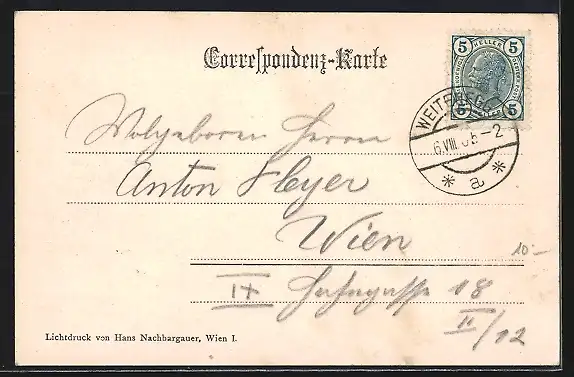 Correspondenz-Karte
5 HELLER 5
5 5
WEITENEGG
6.VIII. 05-2
* a *
Wolgeboren Herrn
Anton Heyer
Wien
10.-
18
II/12
Lichtdruck von Hans Nachbargauer, Wien I.